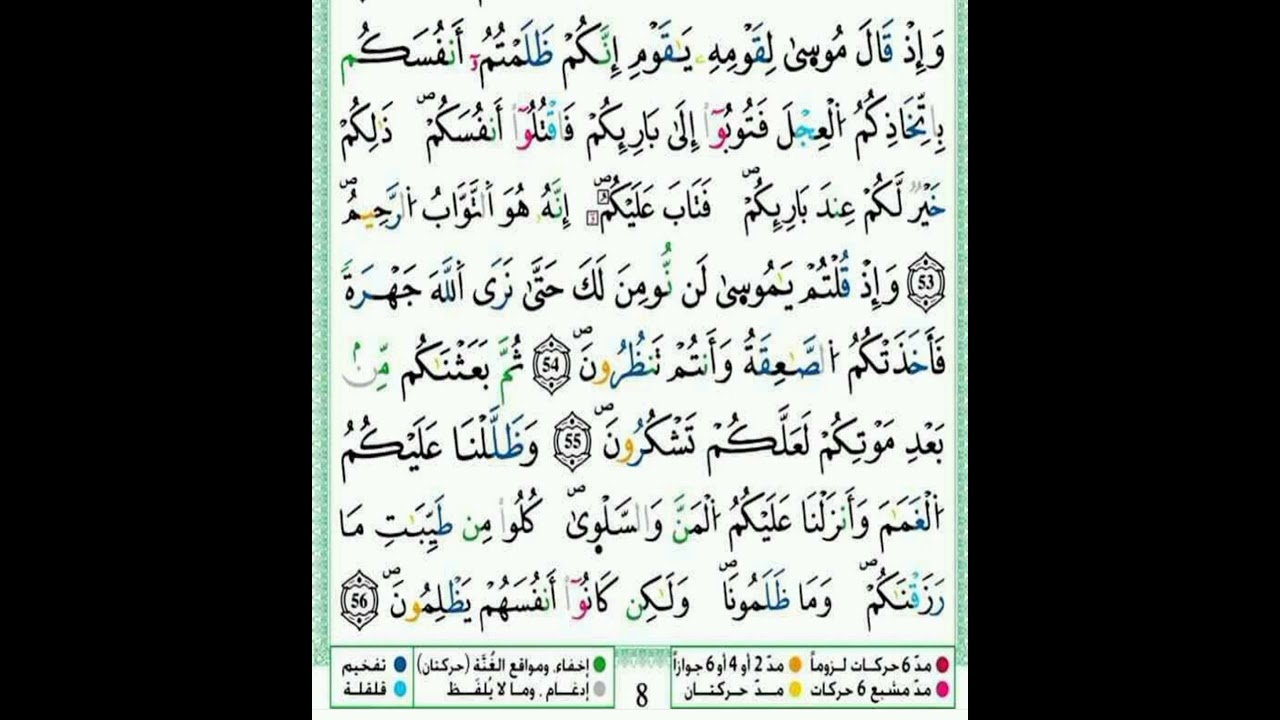 وَإِذْ قَالَ مُوسىٰ لِقَوْمِهِۦ يَٰقَوْمِ إِنَّكُمْ ظَلَمْتُمُۥٓ أَنفُسَكُم
بِاتِّخَاذِكُمُ اُلْعِجْلَ فَتُوبُوٓاْ إِلَىٰ بَارِئِكُمْ فَاقْتُلُوٓاْ أَنفُسَكُمْۖ ذَٰلِكُمْ
خَيْرٌ لَّكُمْ عِندَ بَارِئِكُمْۖ فَتَابَ عَلَيْكُمُۥٓۖ إِنَّهُۥ هُوَ اَلتَّوَّابُ اُلرَّحِيمُۖ
53 وَإِذْ قُلْتُمْ يَٰمُوسىٰ لَن نُّومِنَ لَكَ حَتَّىٰ نَرَى اَللَّهَ جَهْرَةً
فَأَخَذَتْكُمُ اُلصَّٰعِقَةُ وَأَنتُمْ تَنظُرُونَۖ 54 ثُمَّ بَعَثْنَٰكُم مِّنۢ
بَعْدِ مَوْتِكُمْ لَعَلَّكُمْ تَشْكُرُونَۖ 55 وَظَلَّلْنَا عَلَيْكُمُ
اُلْغَمَٰمَ وَأَنزَلْنَا عَلَيْكُمُ اُلْمَنَّ وَالسَّلْوىٰۖ كُلُواْ مِن طَيِّبَٰتِ مَا
رَزَقْنَٰكُمْۖ وَمَا ظَلَمُونَاۖ وَلَٰكِن كَانُوٓاْ أَنفُسَهُمْ يَظْلِمُونَۖ 56
مدّ 6 حركات لزوماً مدّ 2 أو 4 أو 6 جوازاً إخفاء، ومواقع الغُنَّة (حركتان) تفخيم
مدّ مشبع 6 حركات مدّ حركتان إدغام، وما لا يُلفَظ قلقلة
8